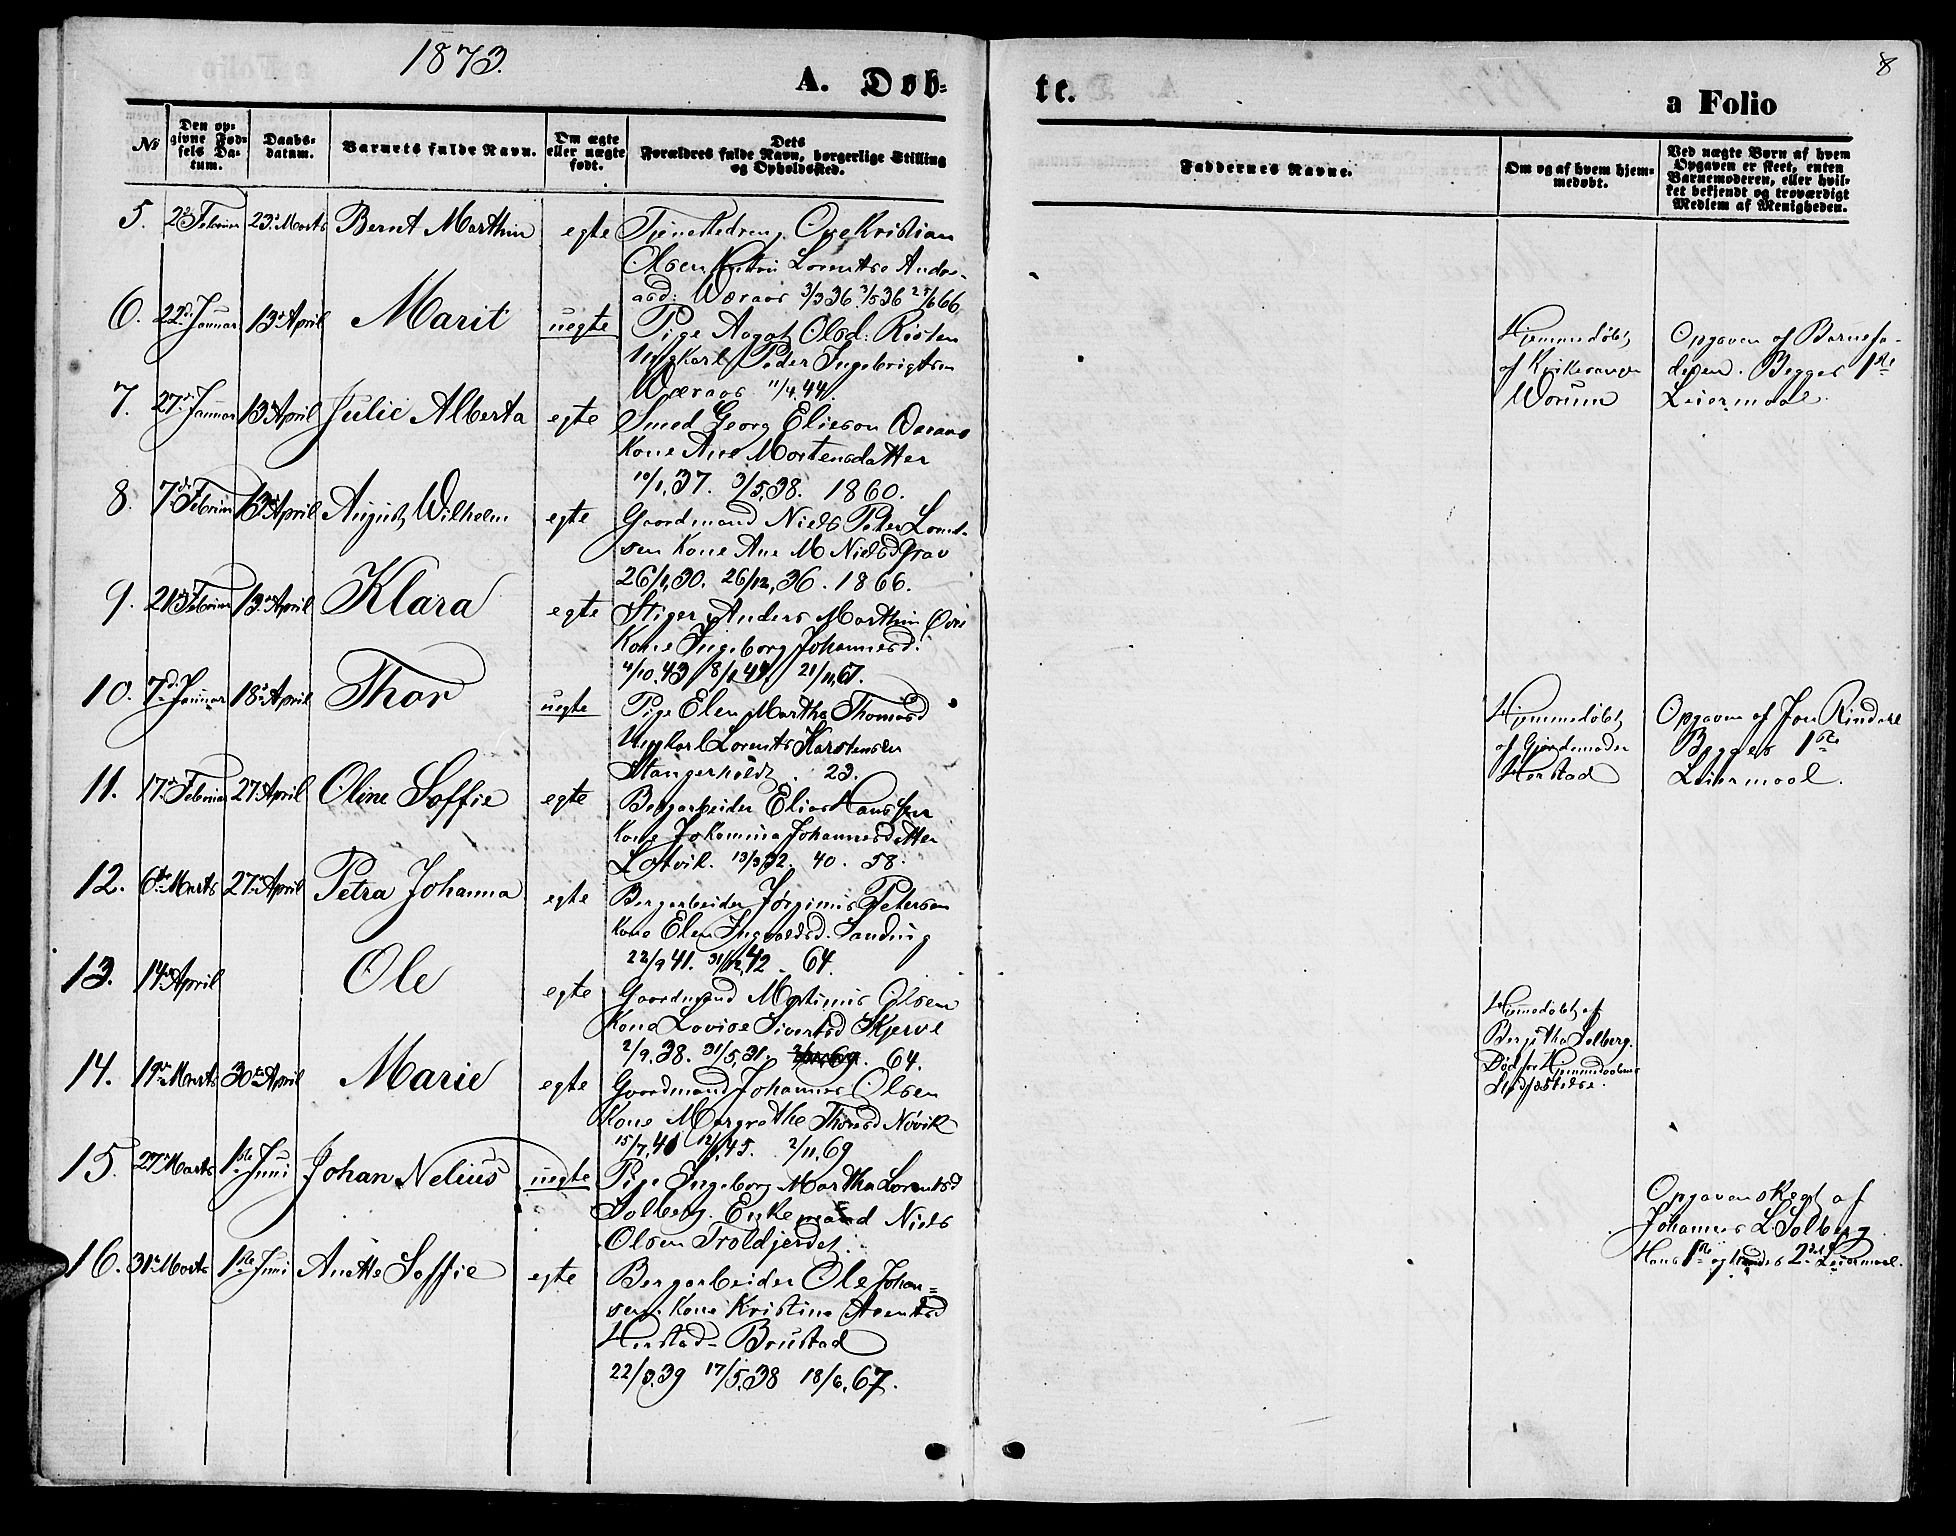 1873.
A. Døb-
te.
8
a Folio
No
Den op-
givne Fød-
sels Da-
tum.
Daabs-
datum.
Barnets fulde Navn.
Om ægte
eller uægte
født.
Dets
Forældres fulde Navn, borgerlige Stilling
og Opholdssted.
Faddernes Navne.
Om og af hvem hjem-
medøbt.
Ved uægte Børn af hvem
Opgaven er skeet, enten
Barnemoderen, eller hvil-
ket bekjendt og troværdigt
Medlem af Menigheden.
5. Februar 23de Marts Bernt Marthin egte Tjenestedreng Ove Kristian
Olsen Lorentse Andre-
asd: Væraas 3/3 36
6. 22de Januar 13de April Marit uegte Pige Aagot Olsd: Risten
Ungkarl Peder Ingebrigtsen
Væraas 11/4, 44.
Hjemmedøbt
af Kirkesanger
Worum
Opgaven af Barnefa-
deren. Begges 1ste
Leiermaal.
7. 27de Januar 13de April Julie Alberta egte Smed Georg Eliesen
Kone Ane Mortensdatter
10/1, 37. 3/5, 38. 1860.
8. 7de Februar 13de April August Wilhelm egte Gaardmand Niels Peter
sen Kone Ane M Nielsd Grav
26/1, 30. 26/12, 36. 1866.
9. 21de Februar 13de April Klara egte Stiger Anders Marthin
Kone Ingeborg Johannesd.
4/10. 43 21/11, 67.
10. 7de Januar 18de April Thor uegte Pige Elen Martha Thomasd
Ungkarl Lorents Karstensen
Stangerholdt. 23.
Hjemmedøbt
af Gjordemoder
Herstad
Opgaven af Jon Rindsel
Begges 1ste
Leiermaal.
11. 17de Februar 27de April Oline Soffie egte Bergarbeider Elias Hanssen
Kone Johannesdatter
Lotvik. 40. 58.
12. 6te Marts 27de April Petra Johanna egte Bergarbeider Jørginus Petersen
Kone Elen Ingvaldsd.
22/9 41. 31/12, 42. 64.
13. 14de April Ole egte Gaardmand Martinus Olsen
Kone Lovise Sivertsd Skjerve
2/9. 38. 31/5, 31. 64.
Hjemmedøbt af
Solberg.
Død før Hjemmedaabens
Stadfæstelse.
14. 19de Marts 30te April Marie egte Gaardmand Johannes Olsen
Kone Margrethe Thoresd Nøvik
15/7, 40 45. 2/11, 69
15. 27de Marts 1ste Juni Johan Nelius uegte Pige Ingeborg Martha Lorentsd
Solberg. Enkemand Niels
Olsen Troldjerdet.
Opgaven skeet af
Johannes L Solberg
Hans 1ste og hendes 2det Leiermaal.
16. 31te Marts 1ste Juni Anette Soffie egte Bergarbeider Ole Johan-
sen. Kone Kristine Arentsd
Herstad-Brustad
22/8. 39 17/5, 38 18/6, 67.